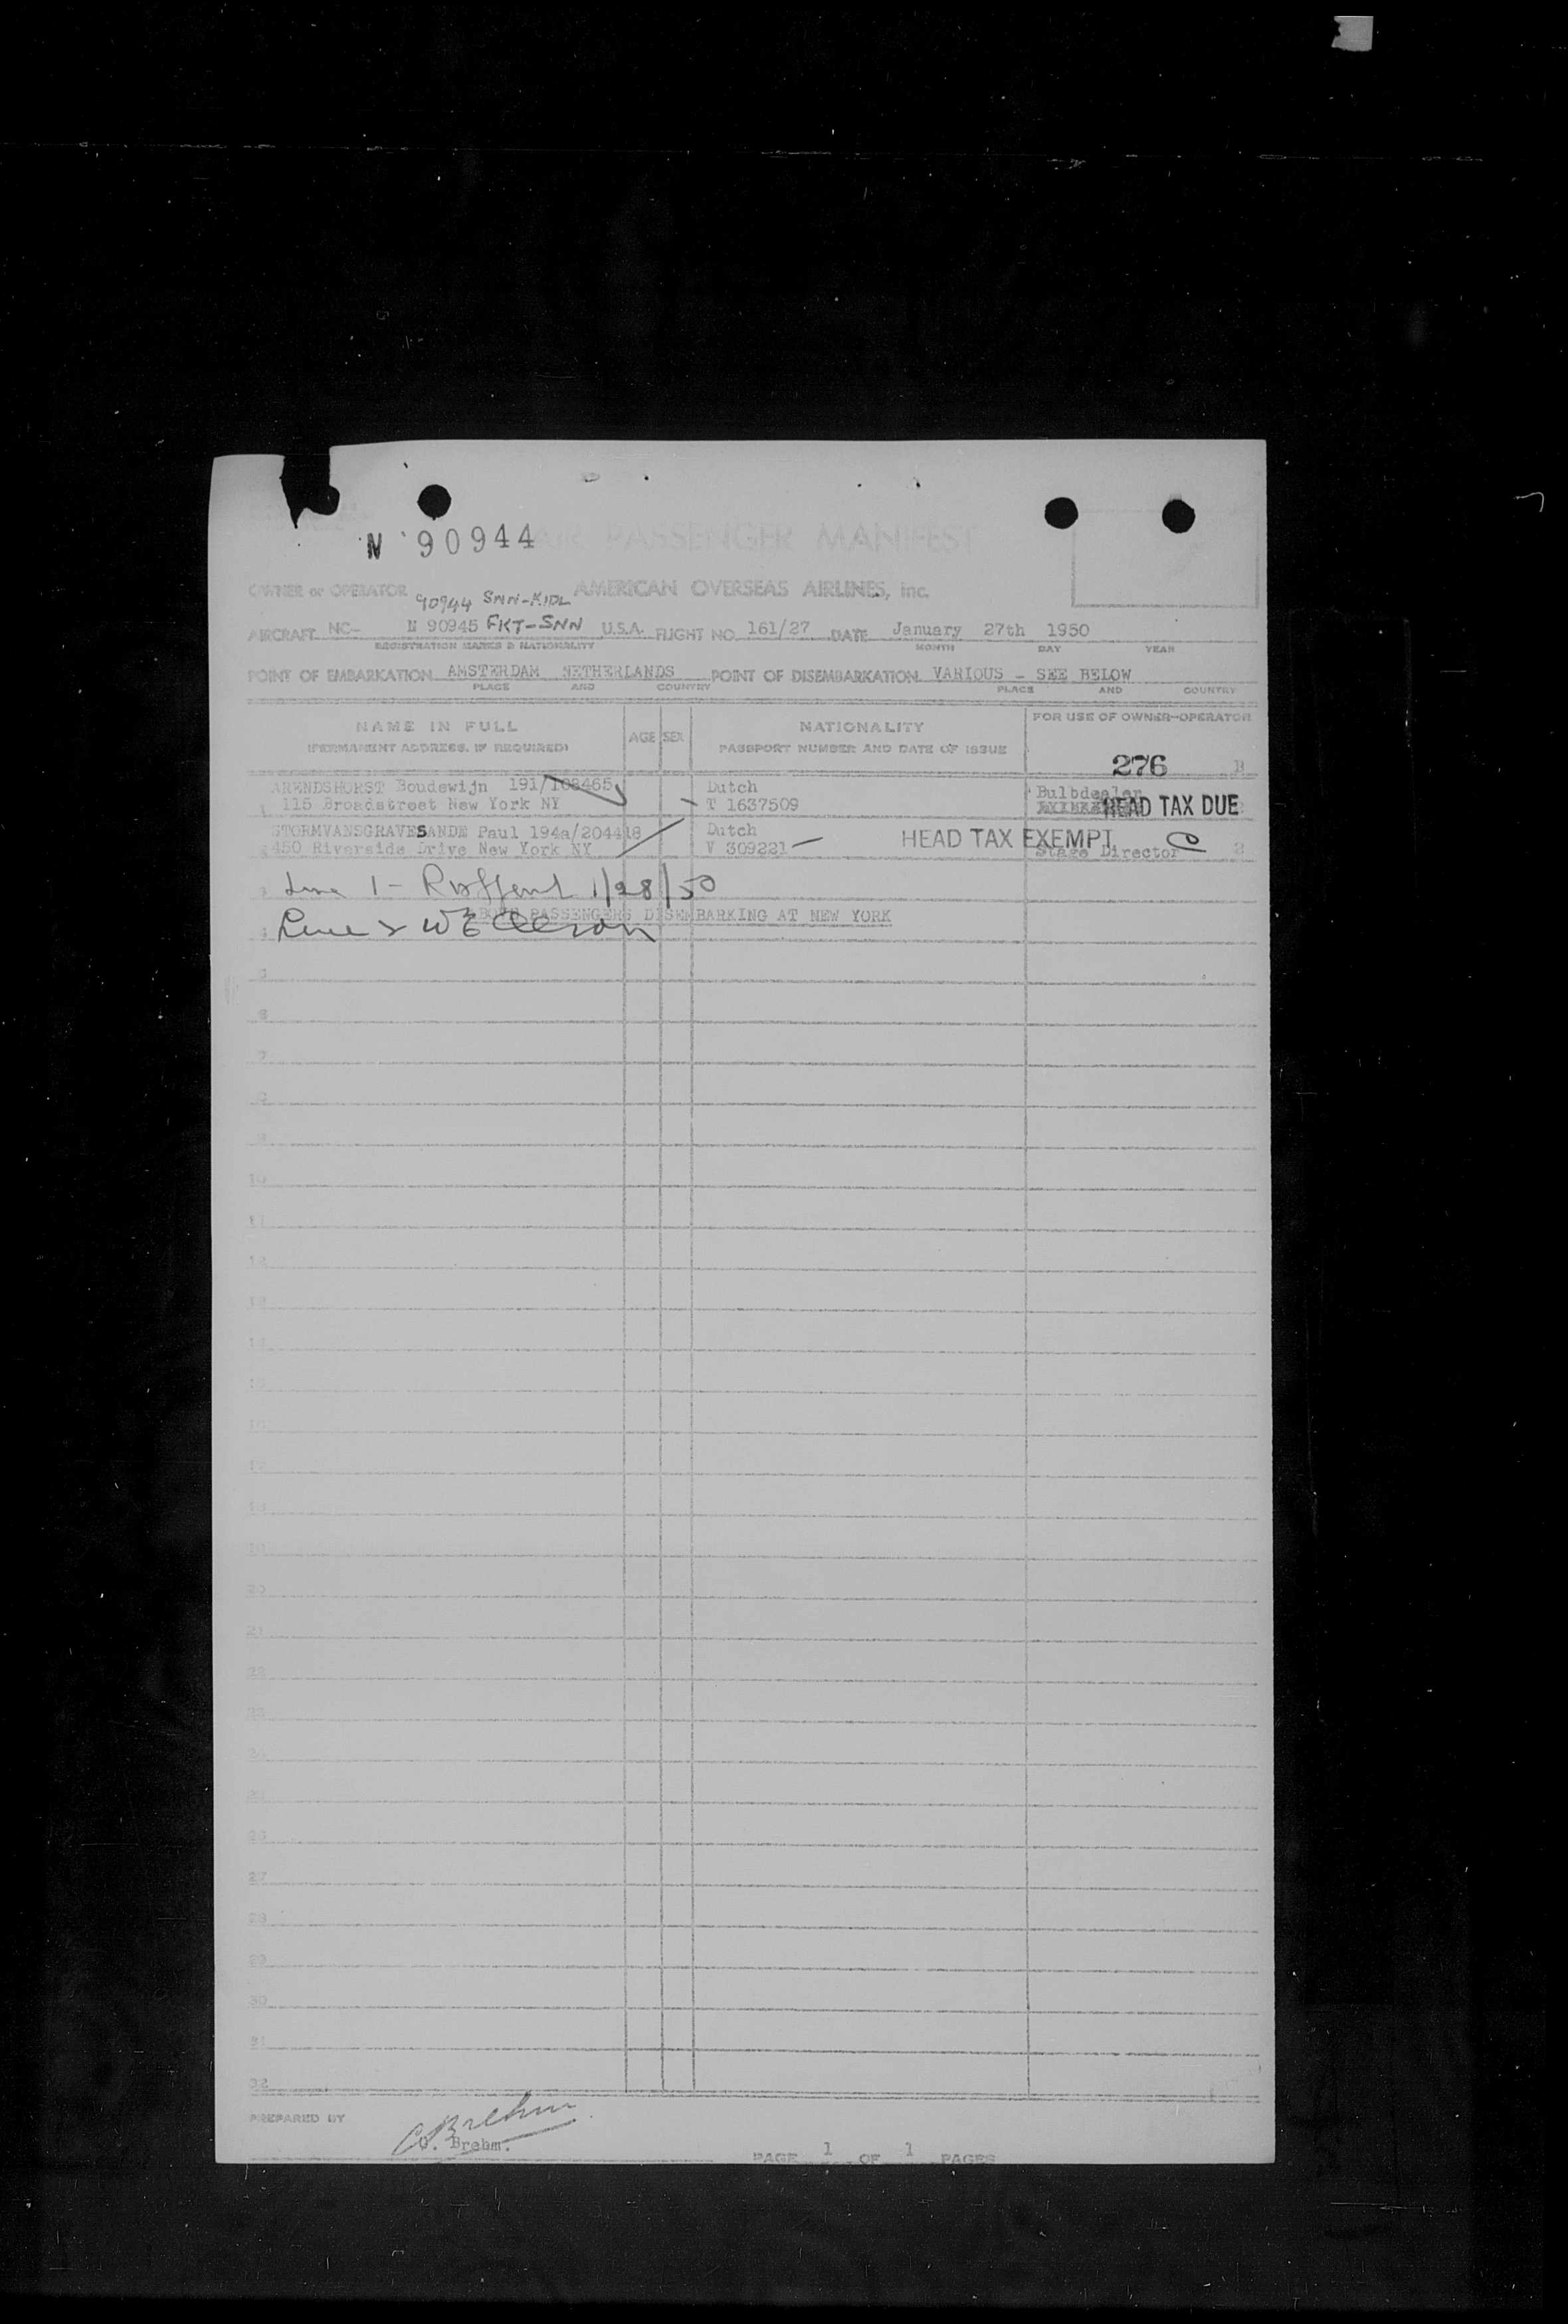 N 90944 AIR PASSENGER MANIFEST
OWNER or OPERATOR AMERICAN OVERSEAS AIRLINES, Inc.
90944 SNN-KIDL
AIRCRAFT NC- N 90945 FKT-SNN U.S.A. FLIGHT NO. 161/27 DATE January 27th 1950
REGISTRATION MARKS & NATIONALITY MONTH DAY YEAR
POINT OF EMBARKATION AMSTERDAM NETHERLANDS POINT OF DISEMBARKATION VARIOUS - SEE BELOW
PLACE AND COUNTRY PLACE AND COUNTRY
NAME IN FULL AGE SEX NATIONALITY FOR USE OF OWNER-OPERATOR
(PERMANENT ADDRESS, IF REQUIRED) PASSPORT NUMBER AND DATE OF ISSUE
276 B
ARENDSHORST Boudewijn 191/108465 Dutch Bulbdealer
1 115 Broadstreet New York NY T 1637509 HEAD TAX DUE
STORMVANSGRAVESANDE Paul 194a/204418 Dutch HEAD TAX EXEMPT
450 Riverside Drive New York NY V 309221 Stage Director 2
Line 1 - 1/28/50
BOTH PASSENGERS DISEMBARKING AT NEW YORK
4 Line 2 WE
5
6
7
8
9
10
11
12
13
14
15
16
17
18
19
20
21
22
23
24
25
26
27
28
29
30
31
32
PREPARED BY CBrehm
C. Brehm.
PAGE 1 OF 1 PAGES